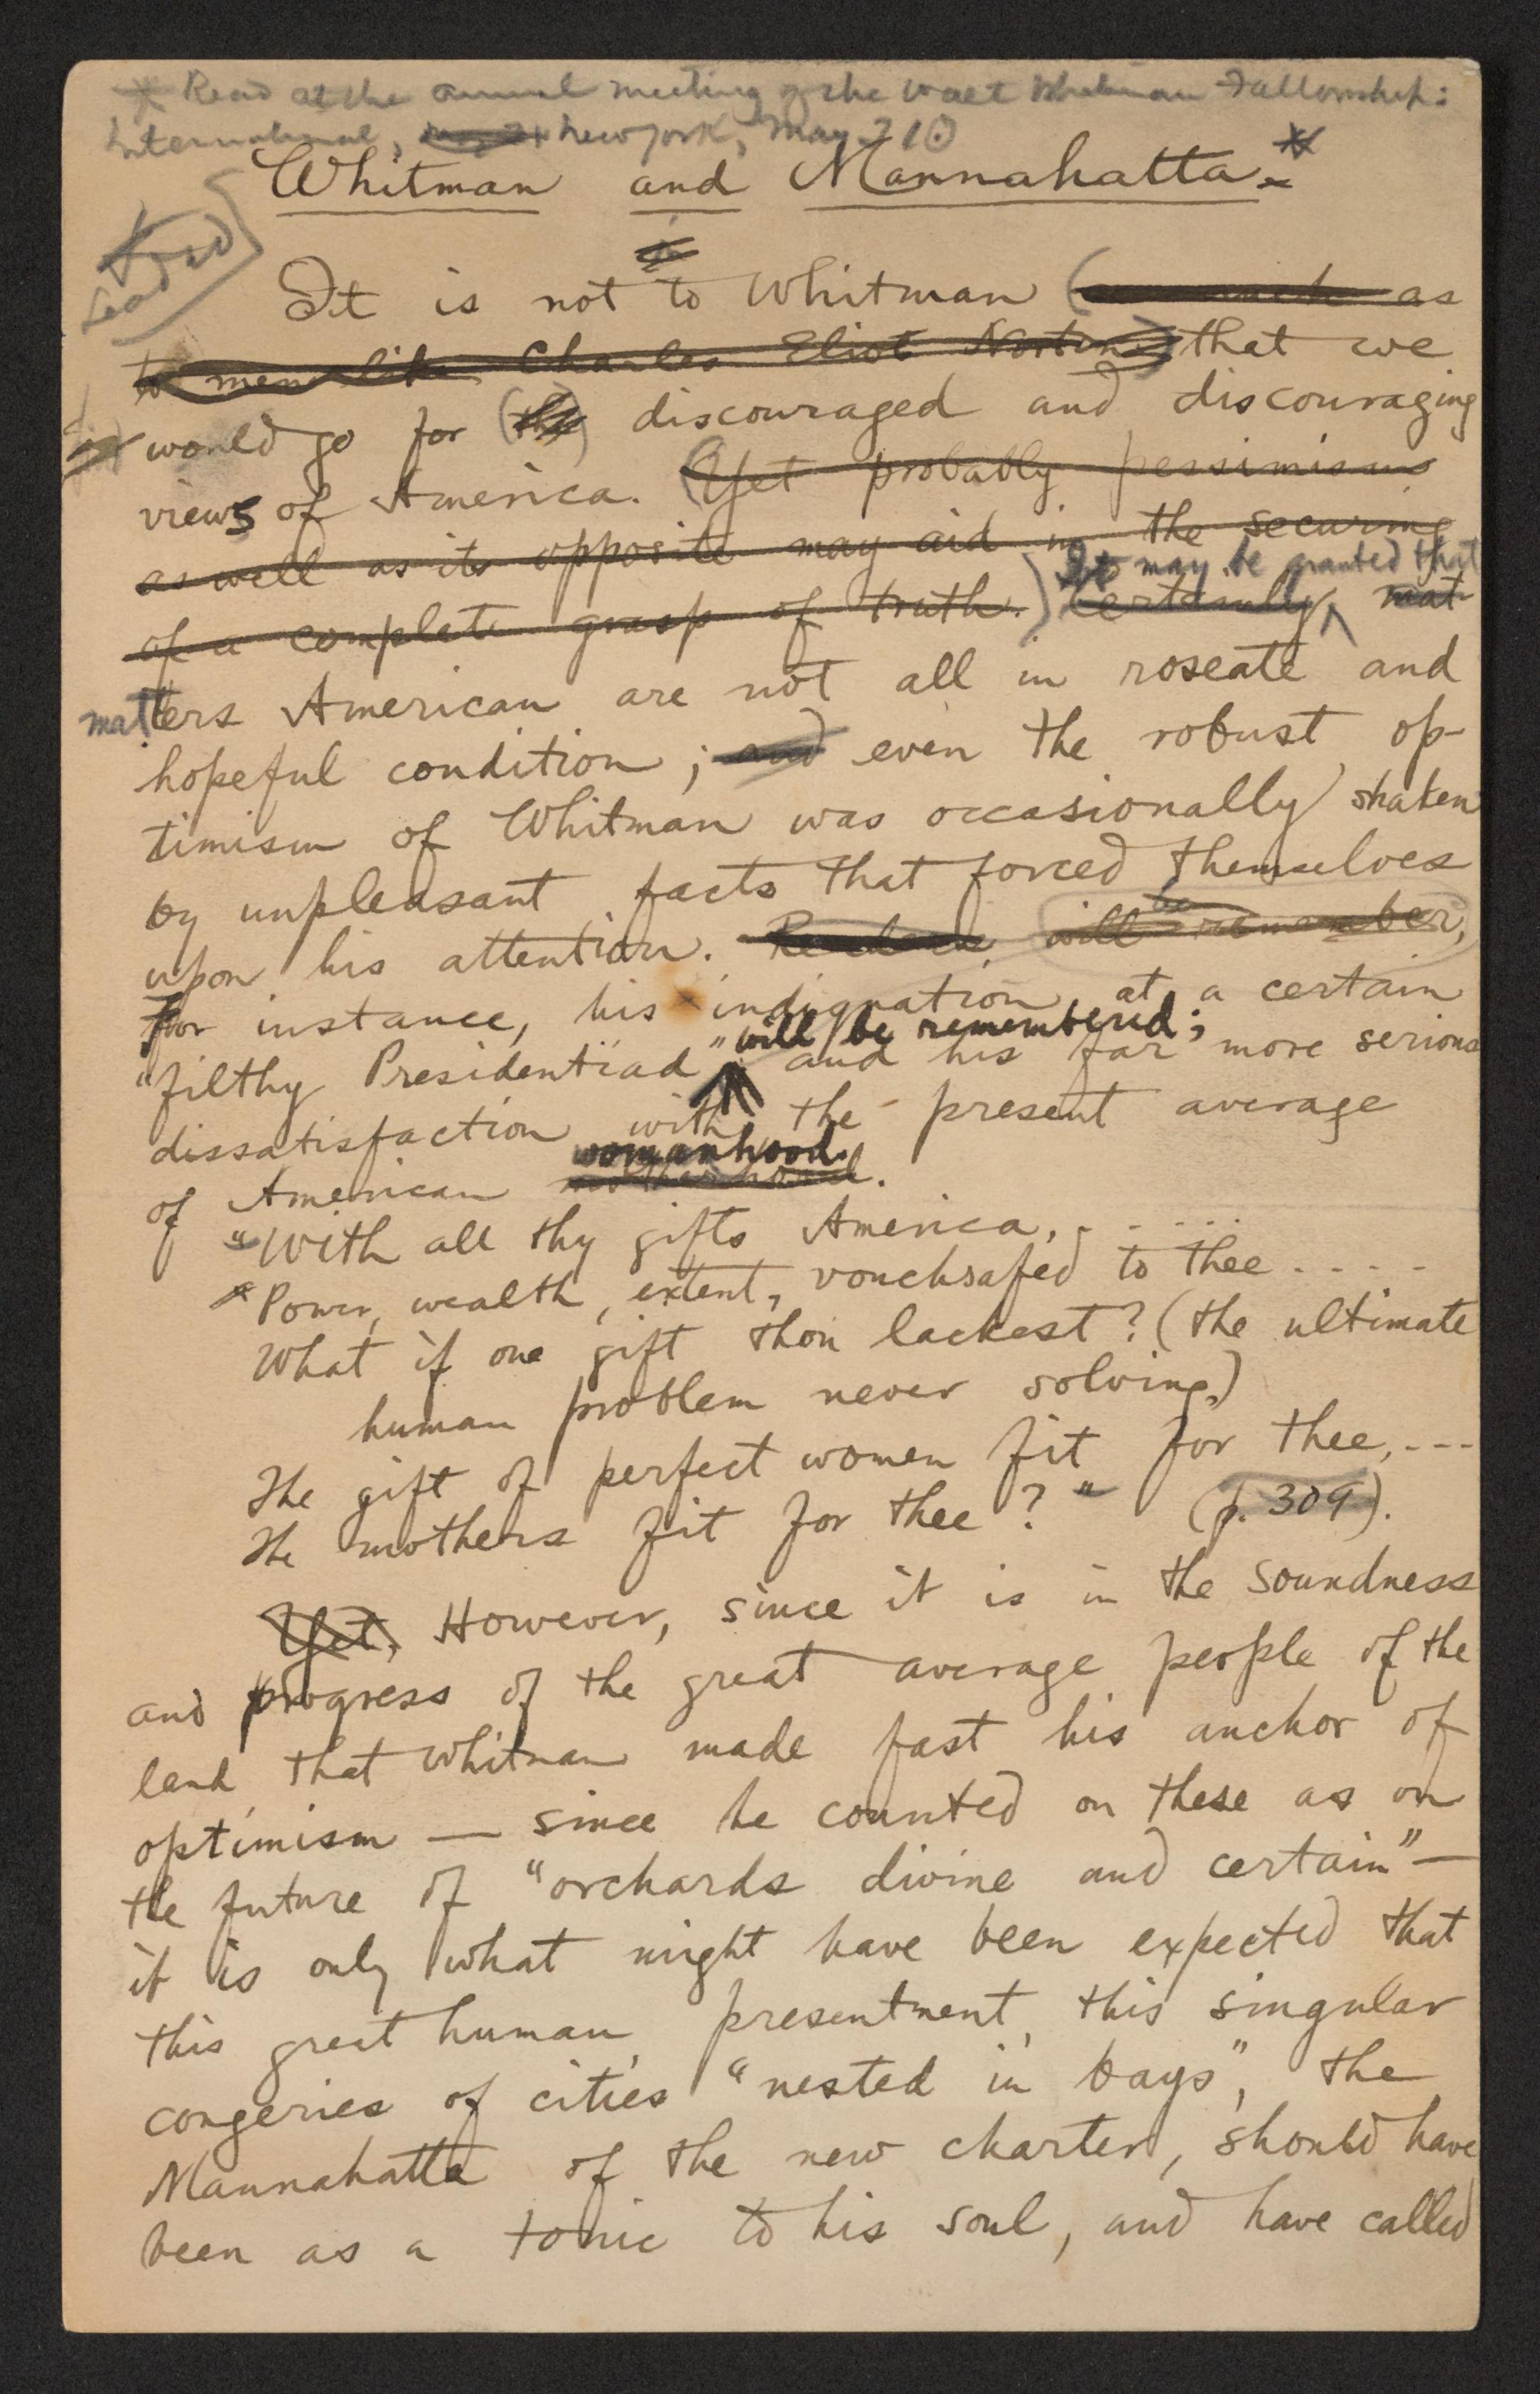 * Read at the annual meeting of the Walt Whitman Fellowship:
International, New York, May 31
Whitman and Mannahatta.*
Lead
It is not to Whitman (so much as
to men like Charles Eliot Norton) that we
would go for (the) discouraged and discouraging
views of America. (Yet probably pessimism
as well as its opposite may aid in the securing
It may be granted that
of a complete grasp of truth.) Certainly, mat
matters American are not all in roseate and
hopeful condition; and even the robust op-
timism of Whitman was occasionally shaken
by unpleasant facts that forced themselves
be
upon his attention. Readers will remember,
For instance, his indignation at a certain
will be remembered;
"filthy Presidentiad" and his far more serious
dissatisfaction with the present average
womanhood.
of American motherhood.
"With all thy gifts America, . . . . . .
"Power, wealth, extent, vouchsafed to thee . . . .
What if one gift thou lackest? (the ultimate
human problem never solving,)
The gift of perfect women fit for thee, . - - -
The mothers fit for thee?" (p. 309).
Yet, However, since it is in the soundness
and progress of the great average people of the
land that Whitman made fast his anchor of
optimism — since he counted on these as on
the future of "orchards divine and certain" —
it is only what might have been expected that
this great human presentment, this singular
congeries of cities "nested in bays", the
Mannahatta of the new charter, should have
been as a tonic to his soul, and have called